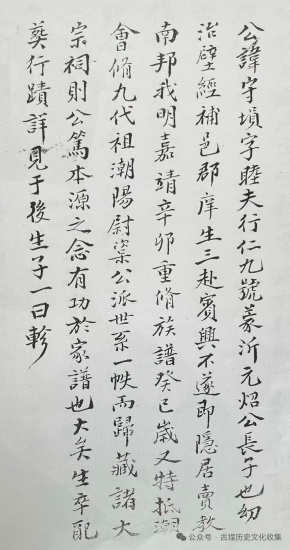 公諱守塤字睦夫行仁九號蒙沂元炤公長子也幼
治壁經補邑郡庠生三赴賓興不遂即隱居賣教
南邦我明嘉靖辛卯重脩族譜癸巳歲又特抵潮
會脩九代祖潮陽尉柒公派世系一帙而歸藏諸大
宗祠則公篤本源之念有功於家譜也大矣生卒配
葬行蹟詳見于後生子一曰軫
公众号·古埕历史文化收集